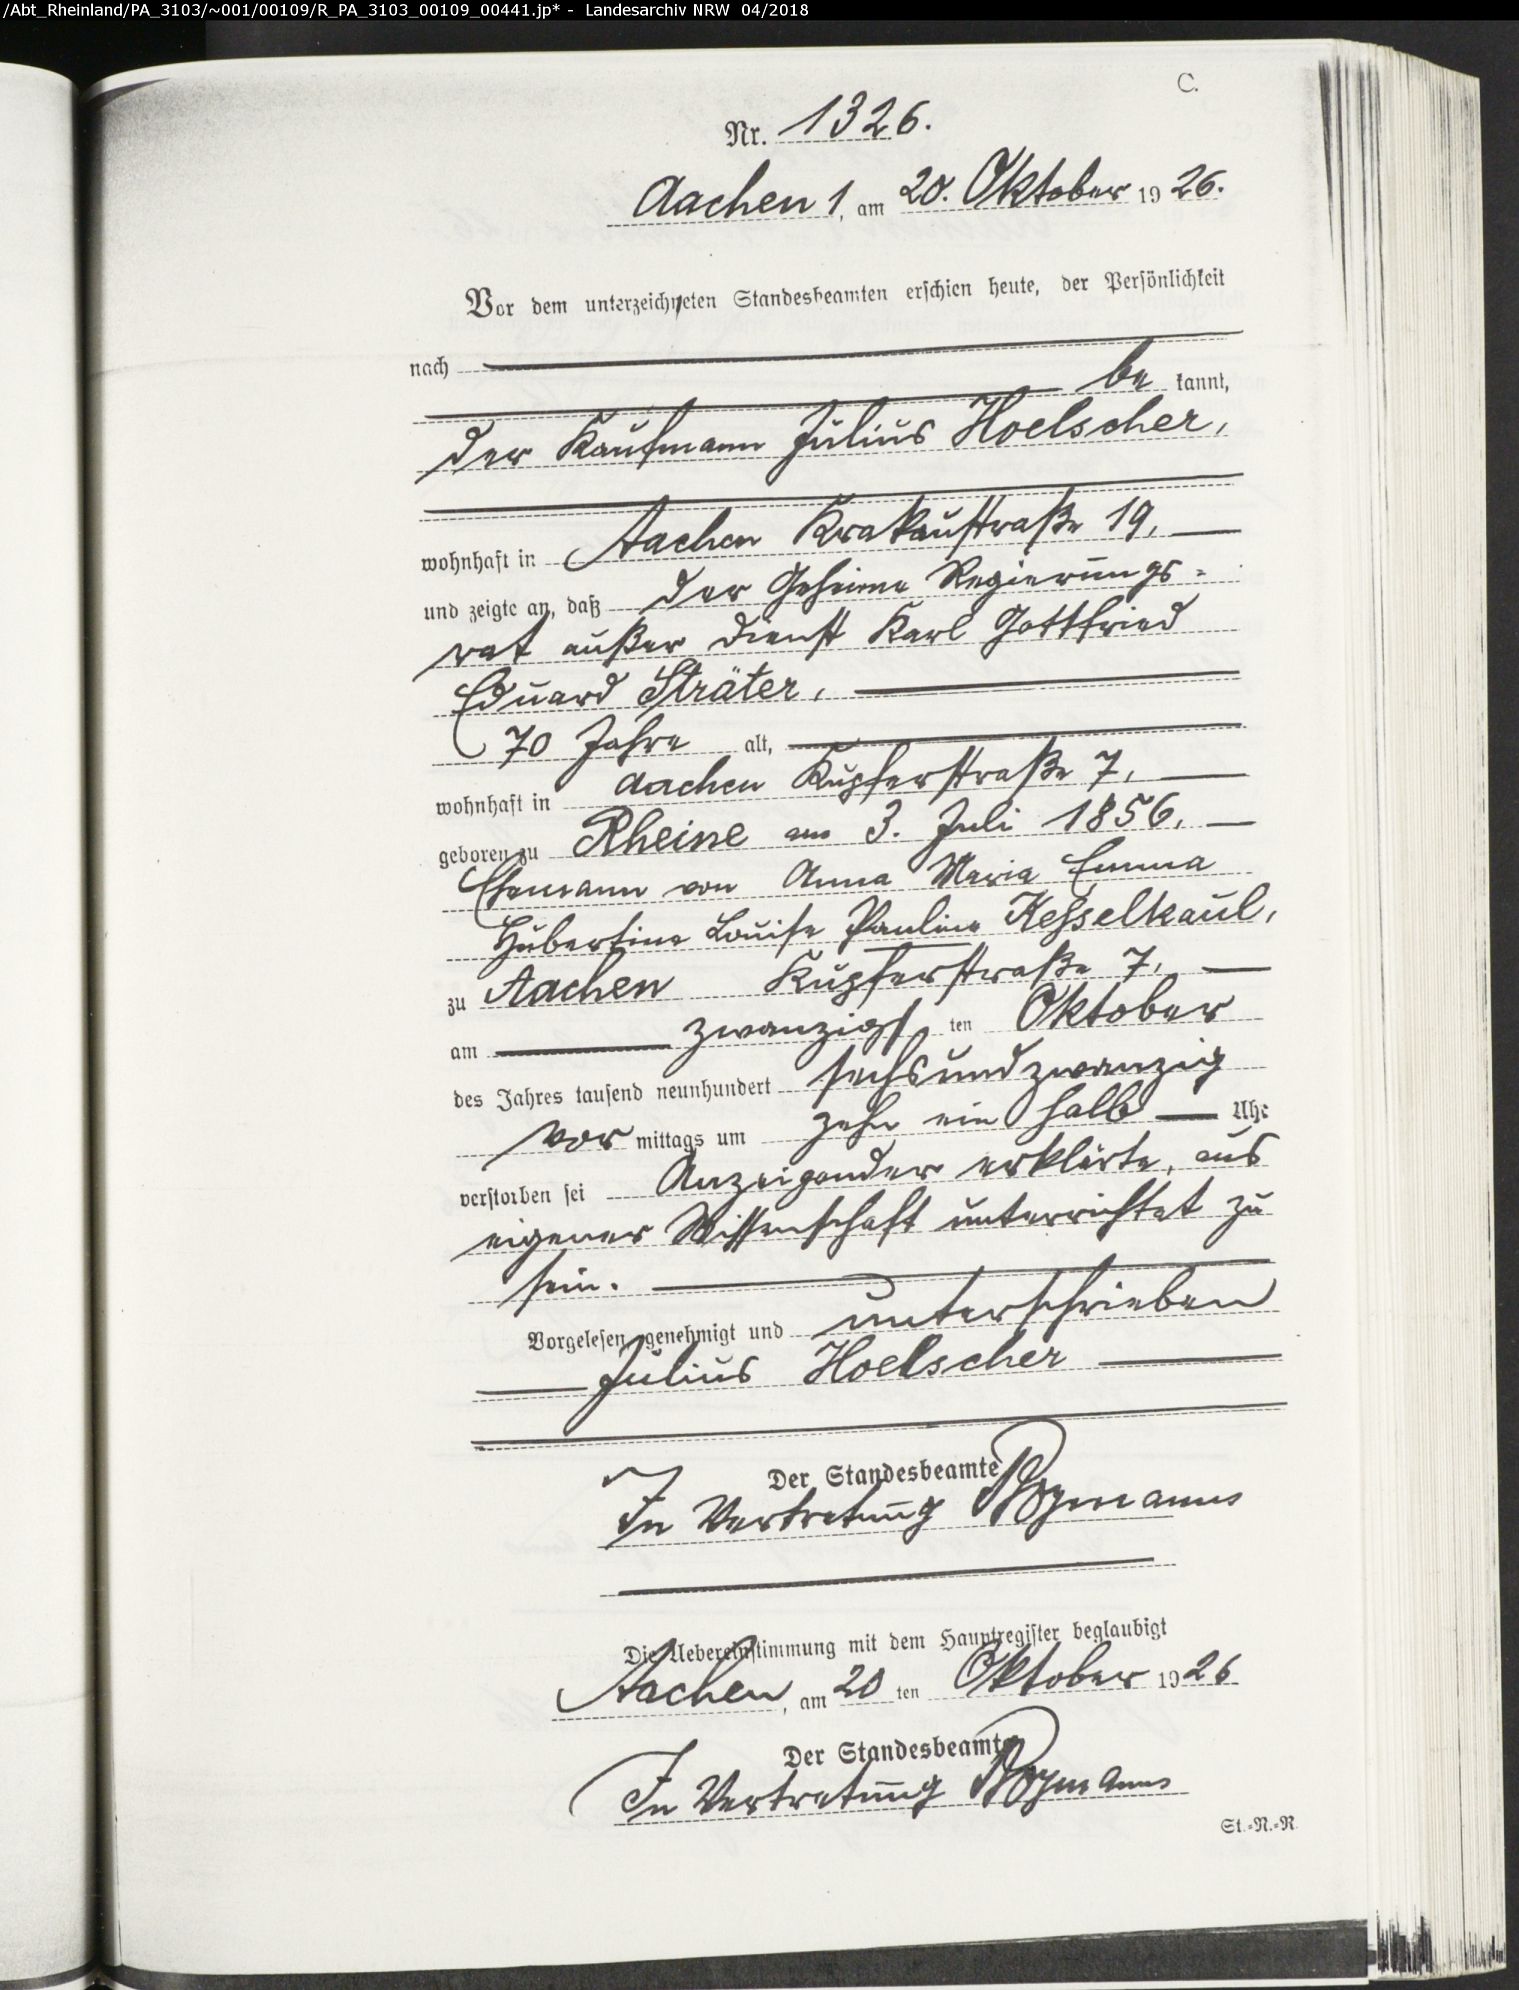 /Abt_Rheinland/PA_3103/~001/00109/R_PA_3103_00109_00441.jp* - Landesarchiv NRW 04/2018
C.
Nr. 1326.
Aachen 1, am 20. Oktober 1926.
Vor dem unterzeichneten Standesbeamten erschien heute, der Persönlichkeit
nach
be kannt,
der Kaufmann Julius Hoelscher,
wohnhaft in Aachen Krakaustraße 19,
und zeigte an, daß der Geheime Regierungs-
rat außer Dienst Karl Gottfried
Eduard Sträter,
70 Jahre alt,
wohnhaft in Aachen Kupferstraße 7,
geboren zu Rheine am 3. Juli 1856,
Ehemann von Anna Maria Emma
Hubertine Louise Pauline Kesselkaul,
zu Aachen Kupferstraße 7,
am zwanzigsten Oktober
des Jahres tausend neunhundert sechsundzwanzig
vor mittags um zehn ein halb Uhr
verstorben sei Anzeigender erklärte, aus
eigener Wissenschaft unterrichtet zu
sein.
Vorgelesen, genehmigt und unterschrieben
Julius Hoelscher
Der Standesbeamte
In Vertretung
Die Uebereinstimmung mit dem Hauptregister beglaubigt
Aachen, am 20 ten Oktober 1926
Der Standesbeamte
In Vertretung
St.-N.-R.